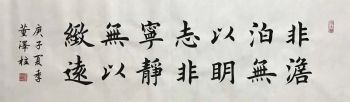 非澹
泊無
以明
志非
寧靜
無以
緻遠
庚子夏季
董澤柱